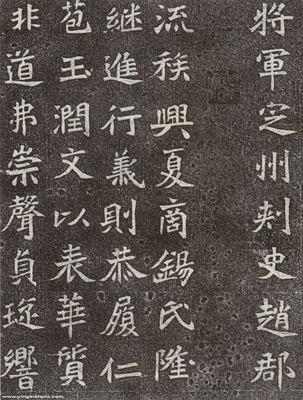 將軍定州刾史趙郡
流興夏商錫氏隆
継進行義則恭履仁
苞玉潤文以表華質
非道弗崇聲貞響
www.yingbishufa.com